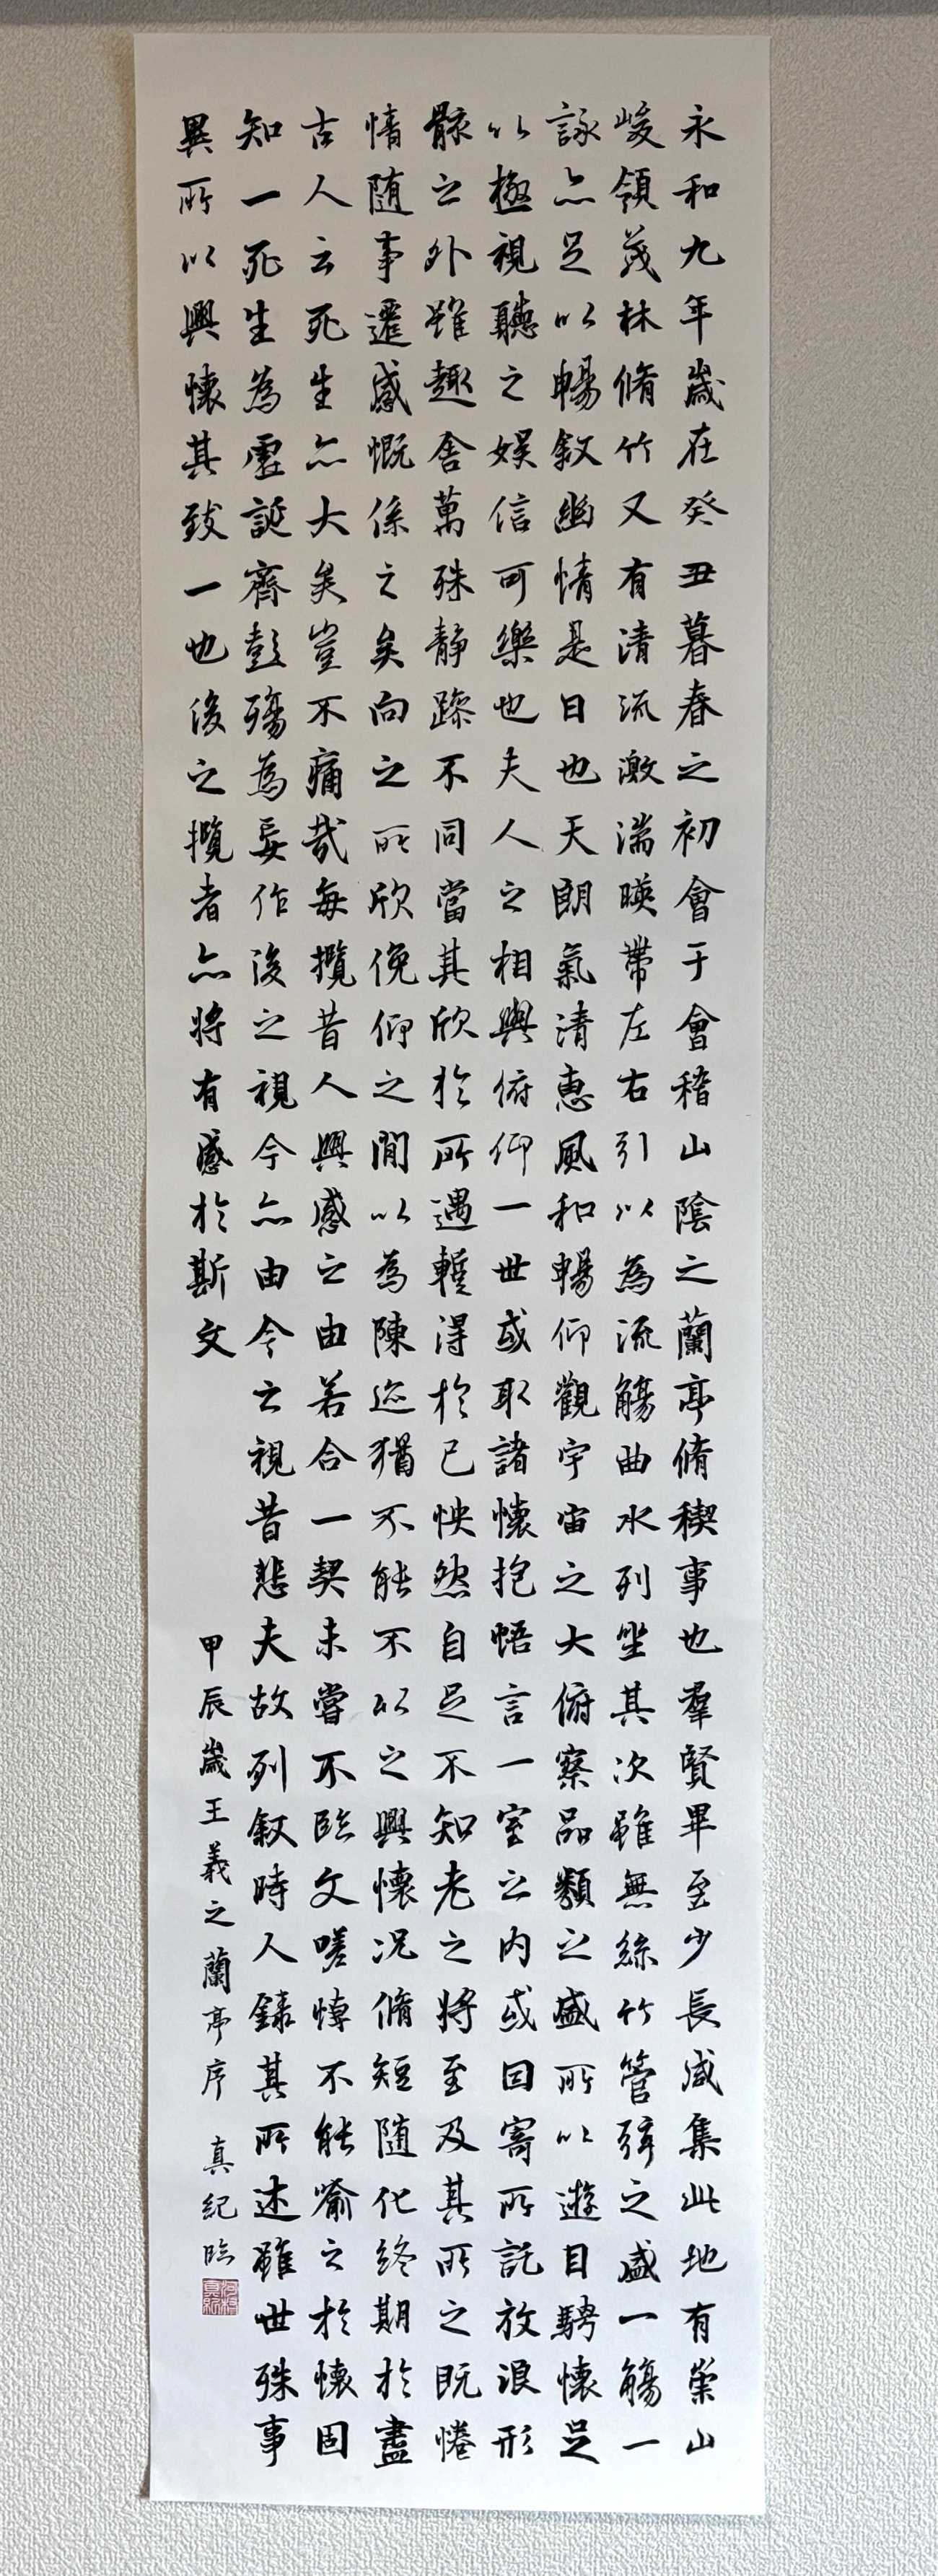 永和九年歲在癸丑暮春之初會于會稽山陰之蘭亭脩稧事也羣賢畢至少長咸集此地有崇山
峻領茂林脩竹又有清流激湍暎帶左右引以為流觴曲水列坐其次雖無絲竹管弦之盛一觴一
詠亦足以暢敘幽情是日也天朗氣清惠風和暢仰觀宇宙之大俯察品類之盛所以遊目騁懷足
以極視聽之娛信可樂也夫人之相與俯仰一世或取諸懷抱悟言一室之內或因寄所託放浪形
骸之外雖趣舍萬殊静躁不同當其欣於所遇輒得於己怏然自足不知老之將至及其所之既惓
情随事遷感慨係之矣向之所欣俛仰之閒以為陳迹猶不能不以之興懷況脩短随化終期於盡
古人云死生亦大矣豈不痛哉每攬昔人興感之由若合一契未嘗不臨文嗟悼不能喻之於懷固
知一死生為虛誕齊彭殤為妄作後之視今亦由今之視昔悲夫故列敘時人錄其所述雖世殊事
異所以興懷其致一也後之攬者亦將有感於斯文
甲辰歲王義之蘭亭序 真紀臨